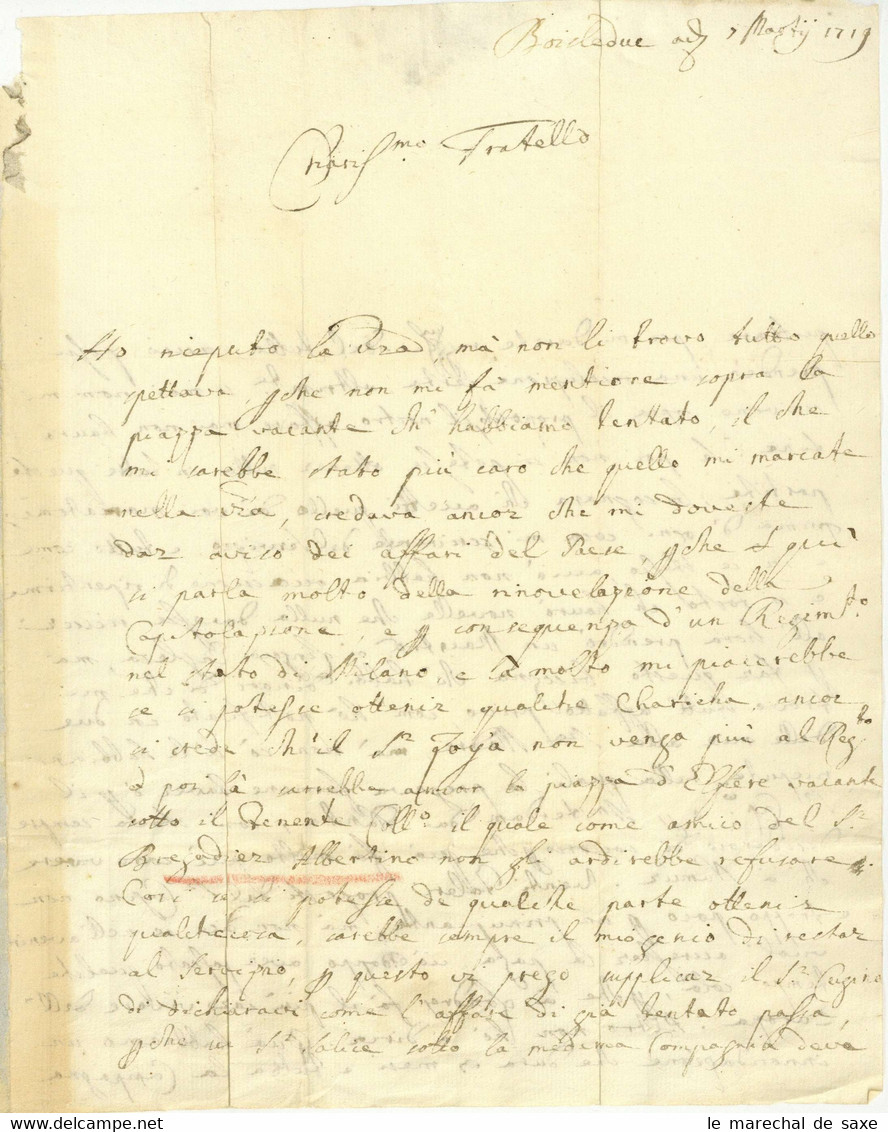 Boisleduc adj 7 Martij 1719
Charis.mo Fratello
Ho riceputo la vra, mà non li trovo tutto quello
spettava, pche non mi fà mentione sopra la
piazza vacante ch' habbiamo tentato, il che
mi sarebbe stato più caro che quello mi marcate
nella vra, credava ancor che mi doveste
dar aviso dei affari del Paese, pche qui
si parla molto della rinovelazione della
Capitolazione, e p consequenza d'un Regim.to
nel stato di Milano, e la molto mi piacerebbe
se si potesse ottenir qualche Charicha, ancor
si crede ch'il S.r Zoya non venga più al Reg.to
e poi là sarrebbe ancor la piazza d'Alfere vacante
sotto il Tenente Coll.o il quale come amico del S.r
Bregadier Albertino non gli ardirebbe refusare.
Così se si potesse de qualche parte ottenir
qualchecosa, sarebbe sempre il mio genio di restar
al servizio, p questo vi prego supplicar il S.r Cugino
di dichiaravi come l'affare di già tentato passa,
pche un S.r Salice sotto la medema Compagnia deve
le marechal de saxe